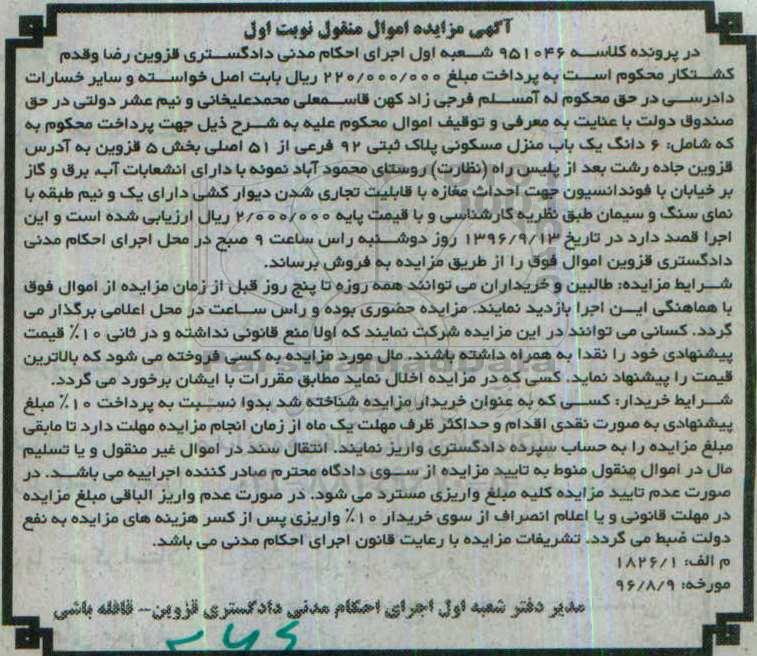 آگهی مزایده اموال منقول نوبت اول
در پرونده کلاسه ۹۵۱۰۴۶ شعبه اول اجرای احکام مدنی دادگستری قزوین رضا وقدم
کشتکار محکوم است به پرداخت مبلغ ۲۲۰/۰۰۰/۰۰۰ ریال بابت اصل خواسته و سایر خسارات
دادرسی در حق محکوم له آمسلم فرجی زاد کهن قاسمعلی محمدعلیخانی و نیم عشر دولتی در حق
صندوق دولت با عنایت به معرفی و توقیف اموال محکوم علیه به شرح ذیل جهت پرداخت محکوم به
که شامل: ۶ دانگ یک باب منزل مسکونی پلاک ثبتی ۹۲ فرعی از ۵۱ اصلی بخش ۵ قزوین به آدرس
قزوین جاده رشت بعد از پلیس راه (نظارت) روستای محمود آباد نمونه با دارای انشعابات آب، برق و گاز
بر خیابان با فوندانسیون جهت احداث مغازه با قابلیت تجاری شدن دیوار کشی دارای یک و نیم طبقه با
نمای سنگ و سیمان طبق نظریه کارشناسی و با قیمت پایه ۲/۰۰۰/۰۰۰ ریال ارزیابی شده است و این
اجرا قصد دارد در تاریخ ۱۳۹۶/۹/۱۳ روز دوشنبه راس ساعت ۹ صبح در محل اجرای احکام مدنی
دادگستری قزوین اموال فوق را از طریق مزایده به فروش برساند.
شرایط مزایده: طالبین و خریداران می توانند همه روزه تا پنج روز قبل از زمان مزایده از اموال فوق
با هماهنگی این اجرا بازدید نمایند. مزایده حضوری بوده و راس ساعت در محل اعلامی برگذار می
گردد. کسانی می توانند در این مزایده شرکت نمایند که اولا منع قانونی نداشته و در ثانی ۱۰٪ قیمت
پیشنهادی خود را نقدا به همراه داشته باشند. مال مورد مزایده به کسی فروخته می شود که بالاترین
قیمت را پیشنهاد نماید. کسی که در مزایده اخلال نماید مطابق مقررات با ایشان برخورد می گردد.
شرایط خریدار: کسی که به عنوان خریدار مزایده شناخته شد بدوا نسبت به پرداخت ۱۰٪ مبلغ
پیشنهادی به صورت نقدی اقدام و حداکثر ظرف مهلت یک ماه از زمان انجام مزایده مهلت دارد تا مابقی
مبلغ مزایده را به حساب سپرده دادگستری واریز نمایند. انتقال سند در اموال غیر منقول و یا تسلیم
مال در اموال منقول منوط به تایید مزایده از سوی دادگاه محترم صادر کننده اجراییه می باشد. در
صورت عدم تایید مزایده کلیه مبلغ واریزی مسترد می شود. در صورت عدم واریز الباقی مبلغ مزایده
در مهلت قانونی و یا اعلام انصراف از سوی خریدار ۱۰٪ واریزی پس از کسر هزینه های مزایده به نفع
دولت ضبط می گردد. تشریفات مزایده با رعایت قانون اجرای احکام مدنی می باشد.
م الف: ۱۸۲۶/۱
مورخه: ۹۶/۸/۹
مدیر دفتر شعبه اول اجرای احکام مدنی دادگستری قزوین- قافله باشی